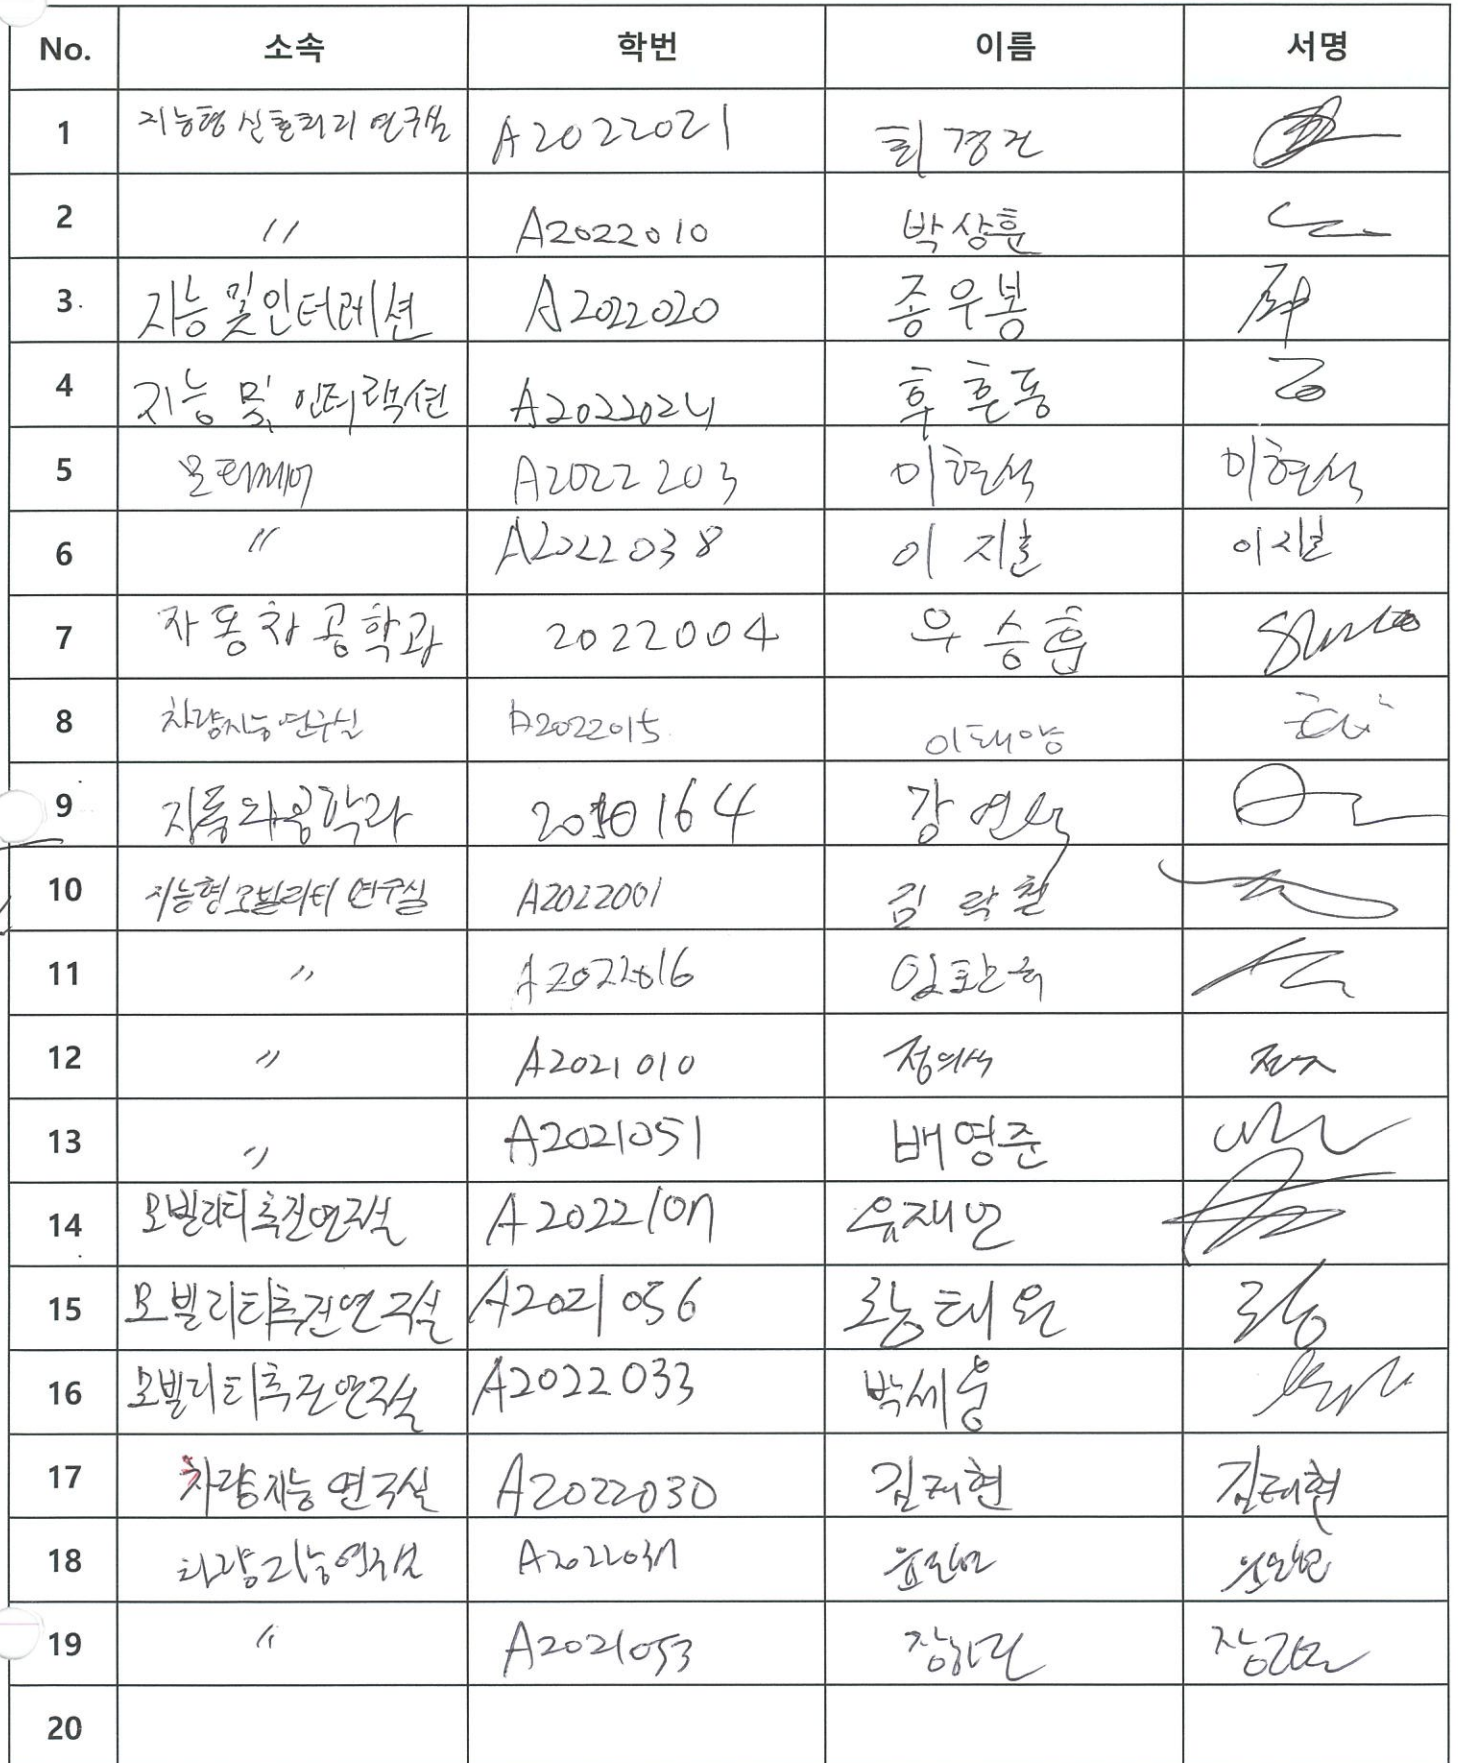 No. 소속 학번 이름 서명
1 지능형 신호처리 연구실 A2022021 최경진
2 〃 A2022010 박상훈
3 지능 및 인터레션 A2022020 종우봉
4 지능 및 인터랙션 A2022024 후훈동
5 모터제어 A2022203 이현석 이현석
6 〃 A2022038 이지훈 이지훈
7 자동차공학과 2022004 우승훈
8 차량지능연구실 A2022015 이태양
9 자동차공학과 164 강연식
10 지능형모빌리티 연구실 A2022001 김락철
11 〃 A2022016
12 〃 A2021010 정의석
13 〃 A2021051 배영준
14 모빌리티추진연구실 A2022107 유재민
15 모빌리티추진연구실 A2021056 태완
16 모빌리티추진연구실 A2022033 박세웅
17 차량지능 연구실 A2022030 김태현 김태현
18 차량지능연구실 A2022037
19 〃 A2021053
20